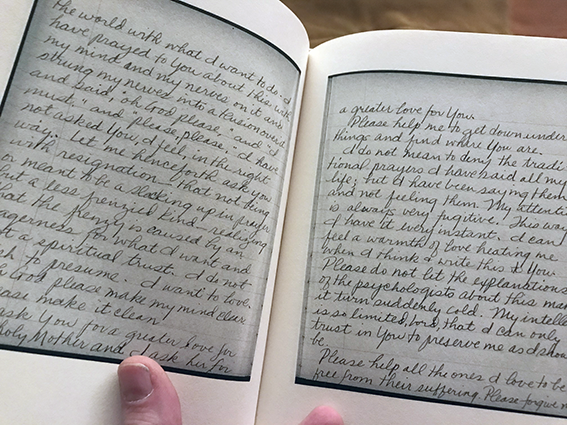 the world with what I want to do. I
have prayed to You about this with
my mind and my nerves on it and
strung my nerves into a tension over it
and said, "oh God please," and "I
must," and "please, please." I have
not asked You, I feel, in the right
way. Let me henceforth ask you
with resignation—that not being
or meant to be a slacking up in prayer
but a less frenzied kind—realizing
that the frenzy is caused by an
eagerness for what I want and
not a spiritual trust. I do not
wish to presume. I want to love.
God please make my mind clear.
please make it clean.
ask You for a greater love for
holy Mother and I ask her for
a greater love for You.
Please help me to get down under
things and find where You are.
I do not mean to deny the tradi-
tional prayers I have said all my
life; but I have been saying them
and not feeling them. My attention
is always very fugitive. This way
I have it every instant. I can
feel a warmth of love heating me
when I think & write this to You.
Please do not let the explanations
of the psychologists about this make
it turn suddenly cold. My intellect
is so limited, Lord, that I can only
trust in You to preserve me as I should
be.
Please help all the ones I love to be
free from their suffering. Please forgive me